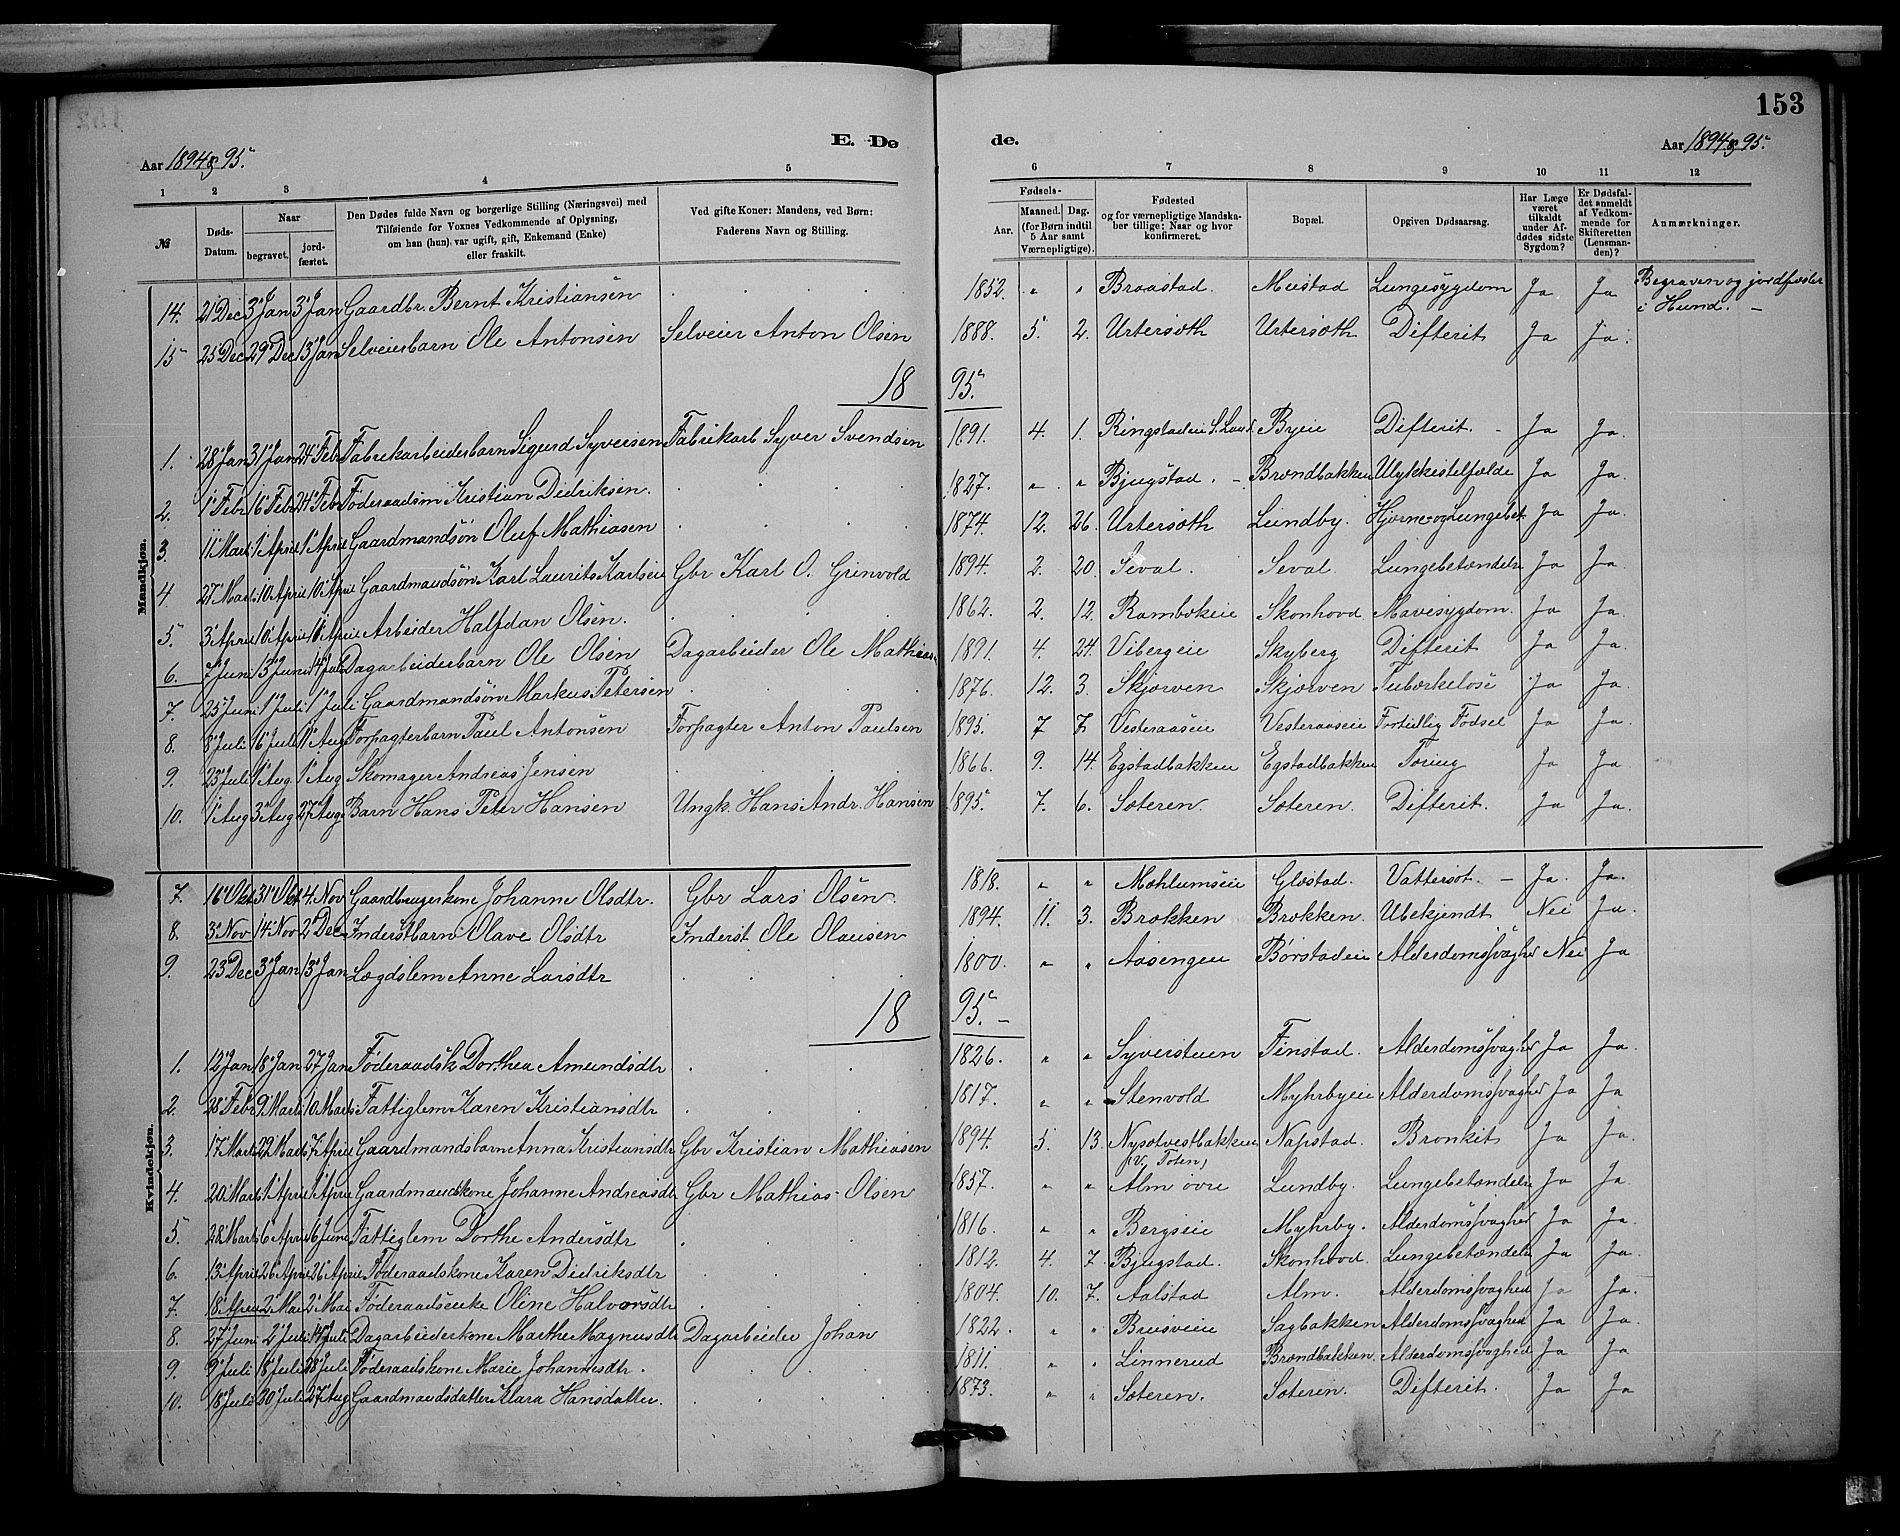 153
E. Dø de.
Aar 1894 & 95. Aar 1894 & 95.
1 2 3 4 5 6 7 8 9 10 11 12
№ Døds-Datum. Naar begravet. jordfæstet. Den Dødes fulde Navn og borgerlige Stilling (Næringsvei) med Tilføiende for Voxnes Vedkommende af Oplysning, om han (hun) var ugift, gift, Enkemand (Enke) eller fraskilt. Ved gifte Koner: Mandens, ved Børn: Faderens Navn og Stilling. Fødsels- Aar. Maaned. Dag. (for Børn indtil 5 Aar samt Værnepligtige). Fødested og for værnepligtige Mandskaber tillige: Naar og hvor konfirmeret. Bopæl. Opgiven Dødsaarsag. Har Læge været tilkaldt under Afdødes sidste Sygdom? Er Dødsfaldet anmeldt af Vedkommende for Skifteretten (Lensmanden)? Anmærkninger.
Mandkjøn.
14. 21 Dec 3 Jan 3 Jan Gaardbr Bernt Kristiansen 1852. " " Braastad. Mustad Lungesygdom Ja Ja Begraven og jordfæstet i Hund. –
15 25 Dec 29 Dec 13 Jan Selveierbarn Ole Antonsen Selveier Anton Olsen 1888. 5. 2. Urtersoth Urtersoth Difterit Ja Ja.
18 95.
1. 28 Jan 31 Jan 24 Febr Fabrikarbeiderbarn Sigurd Syversen Fabrikarb Syver Svendsen 1891. 4. 1. Ringstadeie S. Land Byeie Difterit. – Ja Ja.
2. 1 Febr 16 Febr 24 Feb Føderaadsm Kristian Didriksen. 1827. " " Bjugstad. – Brøndbakken Ulykkestelfælde Ja Ja.
3 11 Marts 1 April 1 April Gaardmandsøn Oluf Mathiasen 1874. 12. 26. Urtersoth Lundby. Hjerne og Lungebet. Ja Ja.
4. 27 Marts 10 April 10 April Gaardmandsøn Karl Laurits Karlsen Gbr Karl O. Grinvold 1894. 2. 20. Seval. Seval Lungebetændelse Ja Ja.
5. 3 April 10 April 16 April Arbeider Halfdan Olsen. 1862. 2. 12. Rambekeie Skonhovd Mavesygdom. Ja Ja.
6. 7 Juni 13 Juni 14 Juli Dagarbeiderbarn Ole Olsen Dagarbeider Ole Mathias 1891. 4. 24. Vibergeie Skyberg Difterit Ja Ja.
7. 25 Juni 1 Juli 1 Juli Gaardmandsøn Markus Petersen 1876. 12. 3. Skjerven Skjerven Tuberkelose Ja Ja.
8. 8 Juli 16 Juli 11 Aug Forpagterbarn Paul Antonsen Forpagter Anton Paulsen 1895. 7 7. Vesteraaseie Vesteraaseie Fortidlig Fødsel Ja Ja.
9. 23 Juli 1 Aug 1 Aug Skomager Andreas Jensen 1866. 9. 14. Egstadbakken Egstadbakken Tæring Ja Ja.
10. 1 Aug 3 Aug 27 Aug Barn Hans Peter Hansen Ungk. Hans Andr. Hansen 1895. 7. 6. Sæteren. Sæteren. Difterit. Ja Ja.
Kvindekjøn.
7. 16 Okt 31 Okt 4. Nov Gaardbrugerkone Johanne Olsdtr. Gbr Lars Olsen. 1818. " " Mæhlumseie Glæstad. Vattersot. – Ja. Ja.
8. 3 Nov 14 Nov 2 Dec Inderstbarn Olave Olsdtr Inderst Ole Olausen 1894. 11. 3. Brækken Brækken. Ubekjendt Nei Ja.
9. 23 Dec 3 Jan 13 Jan Lægdslem Anne Larsdtr 1800. " " Aasengen Børstadeie Alderdomssvaghed Nei Ja
18 95. –
1. 12 Jan 18 Jan 27 Jan Føderaadsk Dorthea Amundsdtr 1826. " " Syverstuen Finstad. Alderdomssvaghed Ja Ja.
2. 28 Febr 9 Marts 10 Marts Fattiglem Karen Kristiansdtr 1817. " " Stenvold Myhrbyeie Alderdomssvaghed Ja Ja
3. 17 Marts 29 Marts 7 April Gaardmandsbarn Anna Kristiansdtr Gbr Kristian Mathiasen 1894. 5. 13. Nysølvestbakken (V. Toten) Napstad. Bronkit Ja Ja.
4. 20 Marts 1 April 1 April Gaardmandskone Johanne Andreasdtr Gbr Mathias Olsen 1857. " " Alm øvre Lundby. Lungebetændelse Ja Ja.
5. 28 Marts 6 April 6 Juni Fattiglem Dorthe Andersdtr 1816. " " Bergseie Myhrby. Alderdomssvaghed Ja Ja.
6. 13 April 26 April 26 April Føderaadskone Karen Didriksdtr 1812. 4. 7. Bjugstad. Skonhovd. Lungebetændelse Ja Ja.
7. 18 April 2 Mai 2 Mai Føderaadsenke Oline Halvorsdtr 1804. 10. 7. Aalstad Alm. Alderdomssvaghed Ja Ja.
8. 27 Juni 2 Juli 14 Juli Dagarbeiderkone Marthe Magnusdtr Dagarbeider Johan 1822. " " Brusveie Sagbakken Alderdomssvaghed Ja Ja.
9. 9 Juli 18 Juli 28 Juli Føderaadskone Marie Johannesdtr. 1811. " " Linnerud Brændbakken. Alderdomssvaghed Ja Ja
10. 18 Juli 20 Juli 27 Aug Gaardmandsdatter Klara Hansdatter. 1873. " " Sæteren. Sæteren. Difterit. Ja Ja